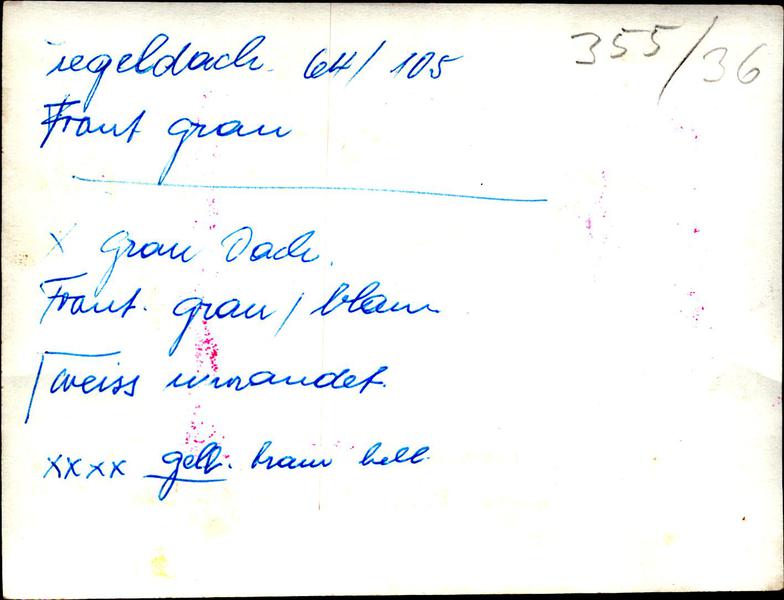 355/36
Ziegeldach. 64/105
Front grau
x grau Dach.
Front. grau / blau
weiss umrandet.
xxxx gelb. braun hell